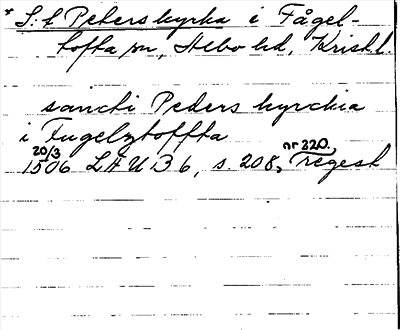 * S:t Peterskyrka i Fågel-
tofta sn, Albo hd, Krist l.
sancti Peders kyrckia
i Fugelztoffta
20/3 nr 220,
1506 LAUB 6, s. 208, regest